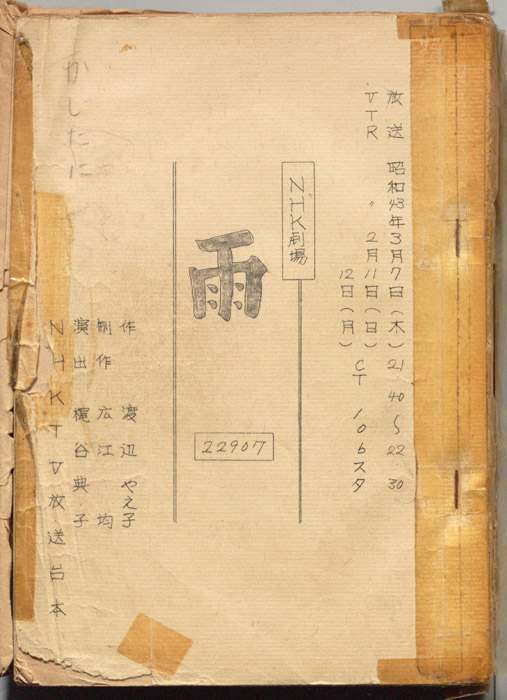 放送 昭和43年3月7日(木)21 40〜22 30
VTR 〃 2月11日(日)
12日(月) CT 106スタ
NHK劇場
雨
22907
作 渡辺 やえ子
制作 広江 均
演出 梶谷典子
NHKTV放送台本